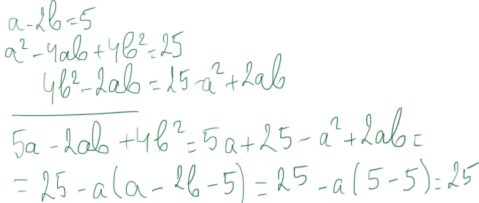 a-2b=5
a²-4ab+4b²=25
4b²-2ab=25-a²+2ab
5a-2ab+4b²=5a+25-a²+2ab=
=25-a(a-2b-5)=25-a(5-5)=25